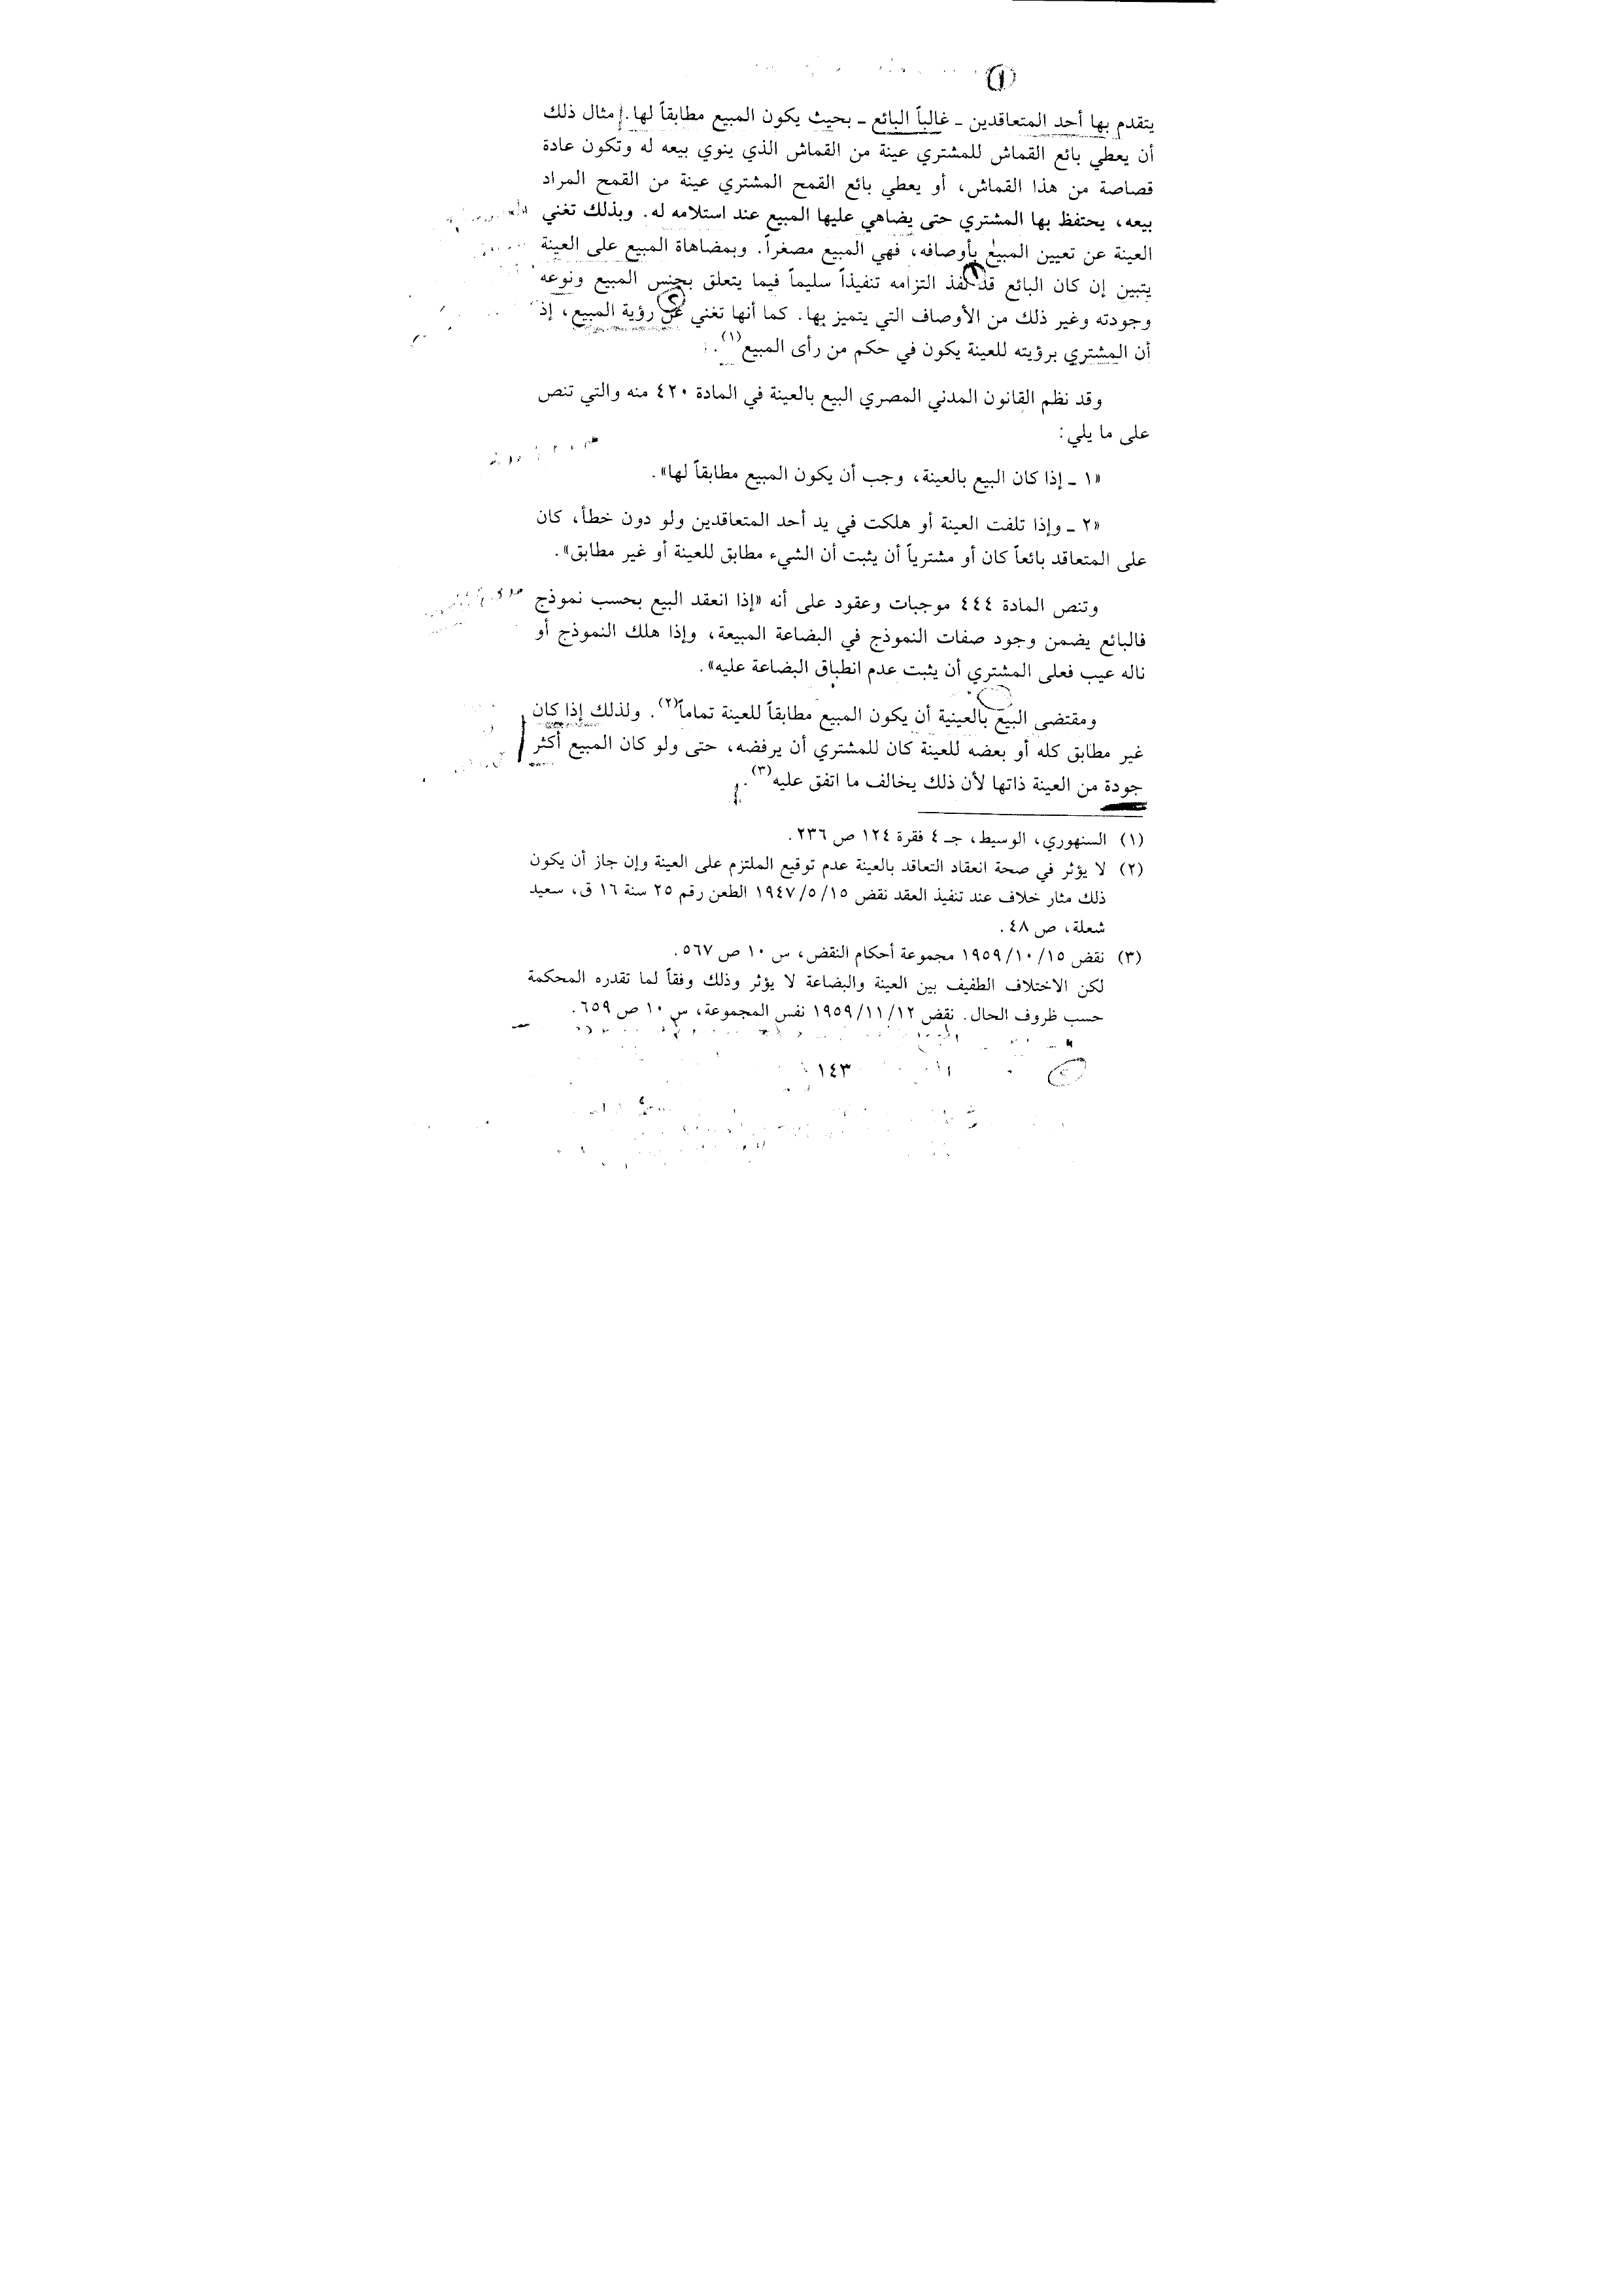 (١)
يتقدم بها أحد المتعاقدين ـ غالباً البائع ـ بحيث يكون المبيع مطابقاً لها. مثال ذلك
أن يعطي بائع القماش للمشتري عينة من القماش الذي ينوي بيعه له وتكون عادة
قصاصة من هذا القماش، أو يعطي بائع القمح المشتري عينة من القمح المراد
بيعه، يحتفظ بها المشتري حتى يضاهي عليها المبيع عند استلامه له. وبذلك تغني
العينة عن تعيين المبيع بأوصافه، فهي المبيع مصغراً. وبمضاهاة المبيع على العينة
يتبين إن كان البائع قد نفذ التزامه تنفيذاً سليماً فيما يتعلق بجنس المبيع ونوعه
وجودته وغير ذلك من الأوصاف التي يتميز بها. كما أنها تغني عن رؤية المبيع، إذ
أن المشتري برؤيته للعينة يكون في حكم من رأى المبيع(١).
وقد نظم القانون المدني المصري البيع بالعينة في المادة ٤٢٠ منه والتي تنص
على ما يلي:
«١ ـ إذا كان البيع بالعينة، وجب أن يكون المبيع مطابقاً لها».
«٢ ـ وإذا تلفت العينة أو هلكت في يد أحد المتعاقدين ولو دون خطأ، كان
على المتعاقد بائعاً كان أو مشترياً أن يثبت أن الشيء مطابق للعينة أو غير مطابق».
وتنص المادة ٤٤٤ موجبات وعقود على أنه «إذا انعقد البيع بحسب نموذج
فالبائع يضمن وجود صفات النموذج في البضاعة المبيعة، وإذا هلك النموذج أو
ناله عيب فعلى المشتري أن يثبت عدم انطباق البضاعة عليه».
ومقتضى البيع بالعينية أن يكون المبيع مطابقاً للعينة تماماً(٢). ولذلك إذا كان
غير مطابق كله أو بعضه للعينة كان للمشتري أن يرفضه، حتى ولو كان المبيع أكثر
جودة من العينة ذاتها لأن ذلك يخالف ما اتفق عليه(٣).
(١) السنهوري، الوسيط، جـ ٤ فقرة ١٢٤ ص ٢٣٦.
(٢) لا يؤثر في صحة انعقاد التعاقد بالعينة عدم توقيع الملتزم على العينة وإن جاز أن يكون
ذلك مثار خلاف عند تنفيذ العقد نقض ١٩٤٧/٥/١٥ الطعن رقم ٢٥ سنة ١٦ ق، سعيد
شعلة، ص ٤٨.
(٣) نقض ١٩٥٩/١٠/١٥ مجموعة أحكام النقض، س ١٠ ص ٥٦٧.
لكن الاختلاف الطفيف بين العينة والبضاعة لا يؤثر وذلك وفقاً لما تقدره المحكمة
حسب ظروف الحال. نقض ١٩٥٩/١١/١٢ نفس المجموعة، س ١٠ ص ٦٥٩.
١٤٣